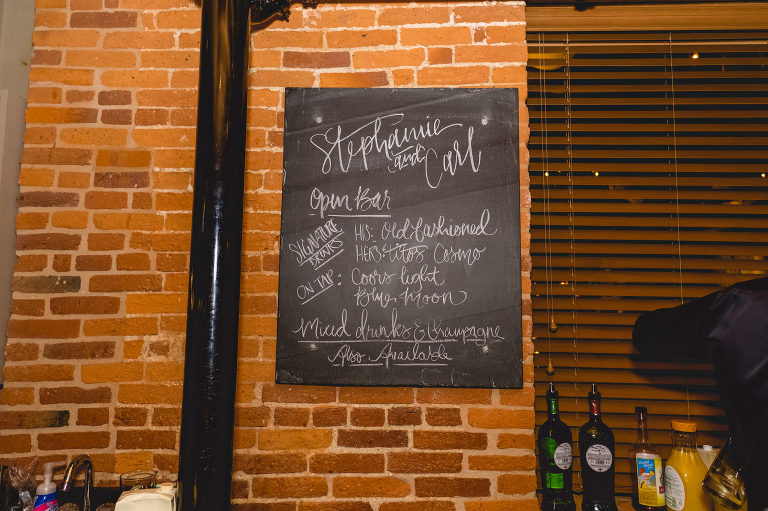 Stephanie
and Carl
Open Bar
SIGNATURE DRINKS
HIS: Old fashioned
HERS: titos Cosmo
ON TAP: Coors light
Blue moon
Mixed drinks & Champagne
Also Available